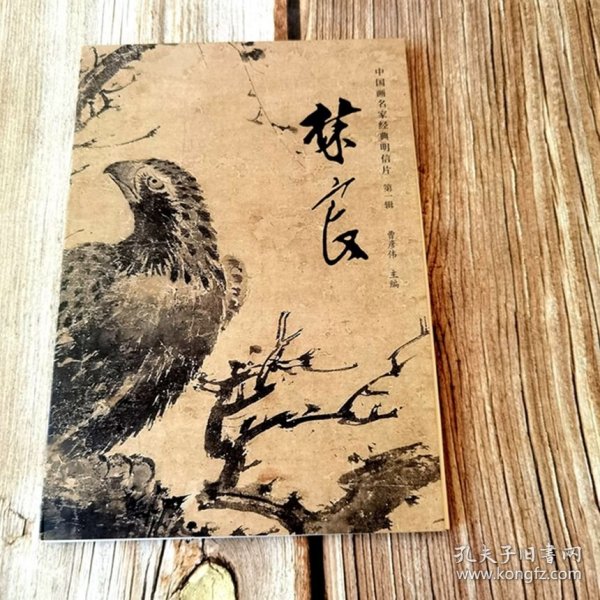 中国画名家经典明信片 第一辑
林良
曹彦伟 主编
孔夫子旧书网
www.kongfz.com